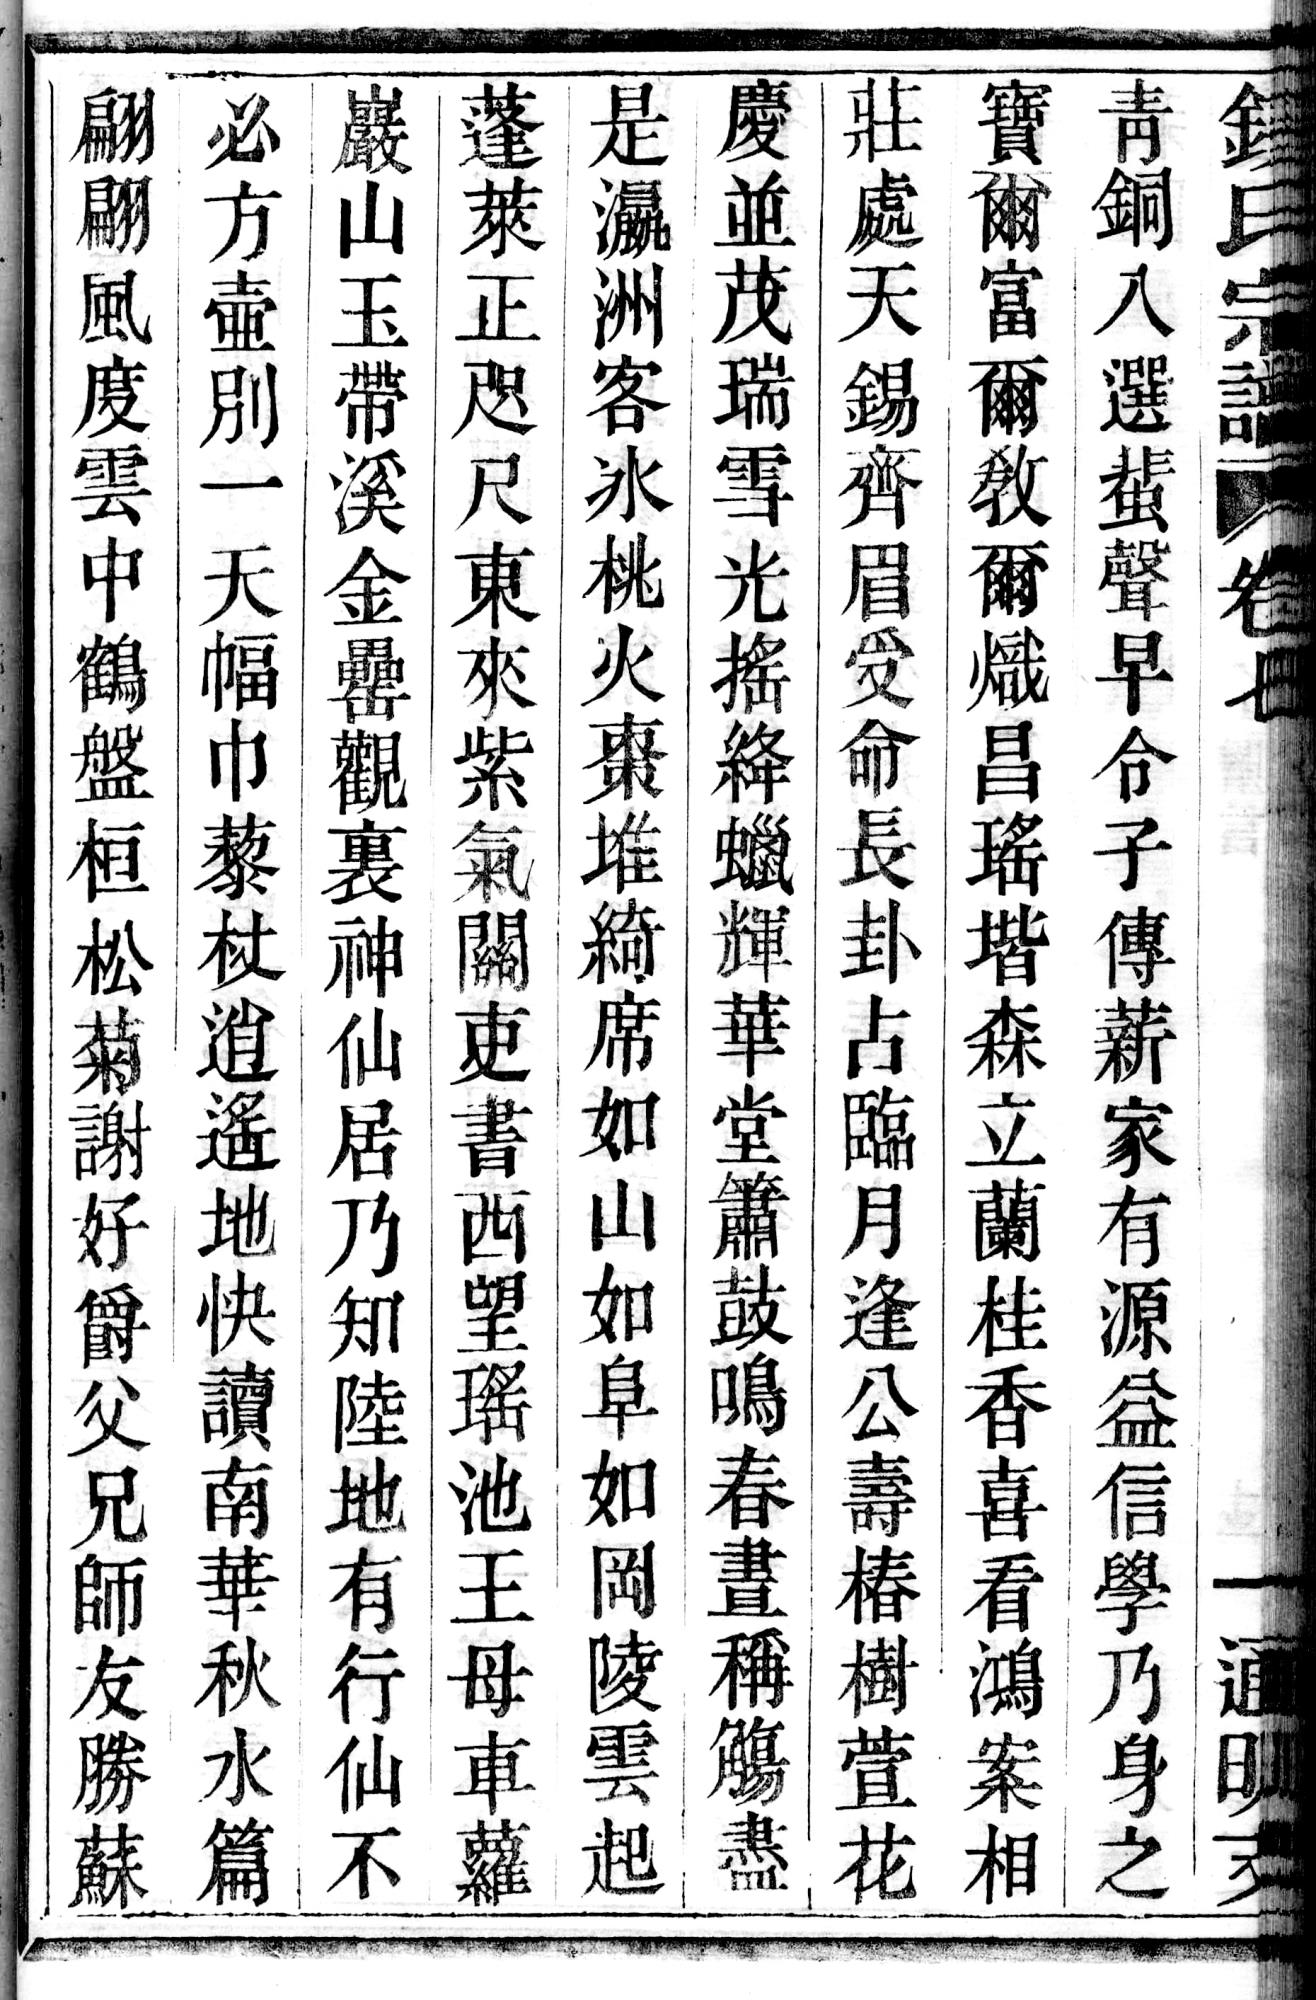 氏宗譜 卷七 通明
青銅八選蜚聲早令子傳薪家有源益信學乃身之
寶爾富爾敎爾熾昌瑤堦森立蘭桂香喜看鴻案相
莊處天錫齊眉受命長卦占臨月逢公壽椿樹萱花
慶並茂瑞雪光搖絳蠟輝華堂簫鼓鳴春晝稱觴盡
是瀛洲客氷桃火棗堆綺席如山如阜如岡陵雲起
蓬萊正咫尺東來紫氣關吏書西望瑤池王母車蘿
巖山玉帶溪金罍觀裏神仙居乃知陸地有行仙不
必方壺別一天幅巾藜杖逍遙地快讀南華秋水篇
翩翩風度雲中鶴盤桓松菊謝好爵父兄師友勝蘇